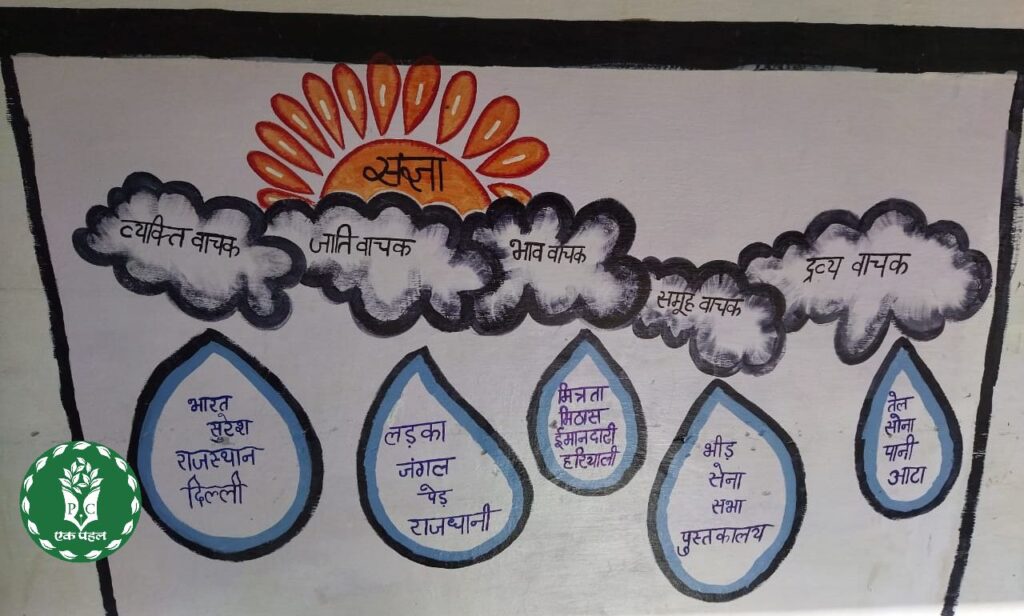 संज्ञा
व्यक्ति वाचक
जाति वाचक
भाव वाचक
समूह वाचक
द्रव्य वाचक
भारत
सुरेश
राजस्थान
दिल्ली
लड़का
जंगल
पेड़
राजधानी
मित्रता
मिठास
ईमानदारी
हरियाली
भीड़
सेना
सभा
पुस्तकालय
तेल
सोना
पानी
आटा
P.C
एक पहल